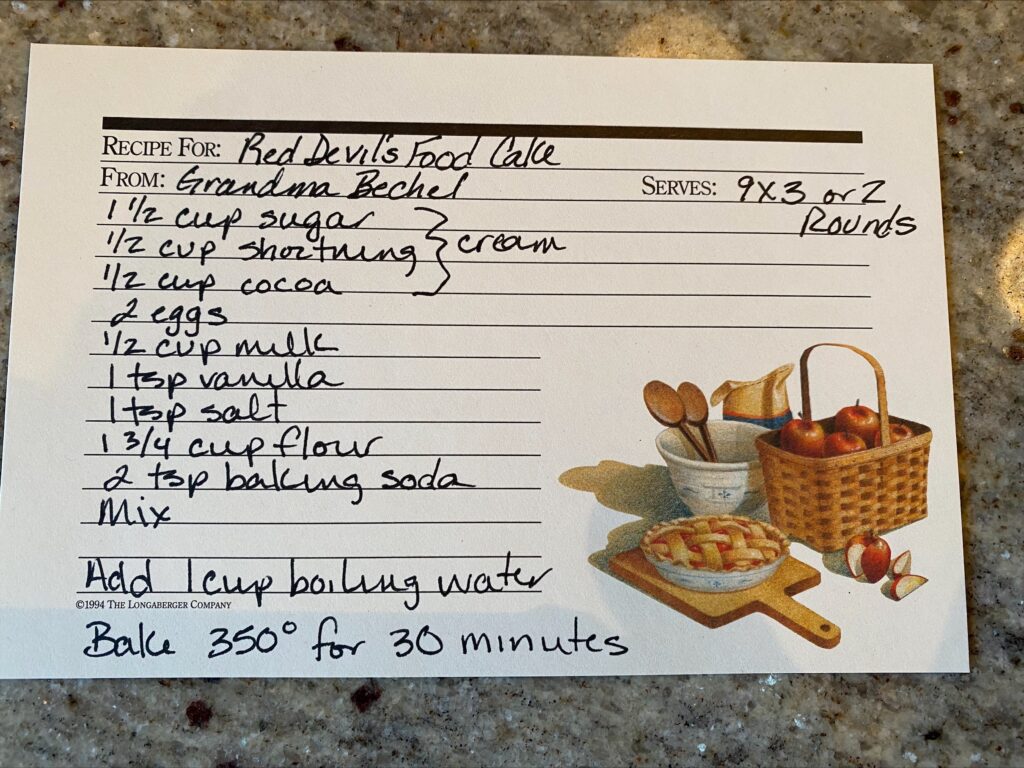 RECIPE FOR: Red Devil's Food Cake
FROM: Grandma Bechel SERVES: 9x3 or 2
Rounds
1 1/2 cup sugar
1/2 cup shortning } cream
1/2 cup cocoa
2 eggs
1/2 cup milk
1 tsp vanilla
1 tsp salt
1 3/4 cup flour
2 tsp baking soda
Mix
Add 1 cup boiling water
©1994 THE LONGABERGER COMPANY
Bake 350° for 30 minutes